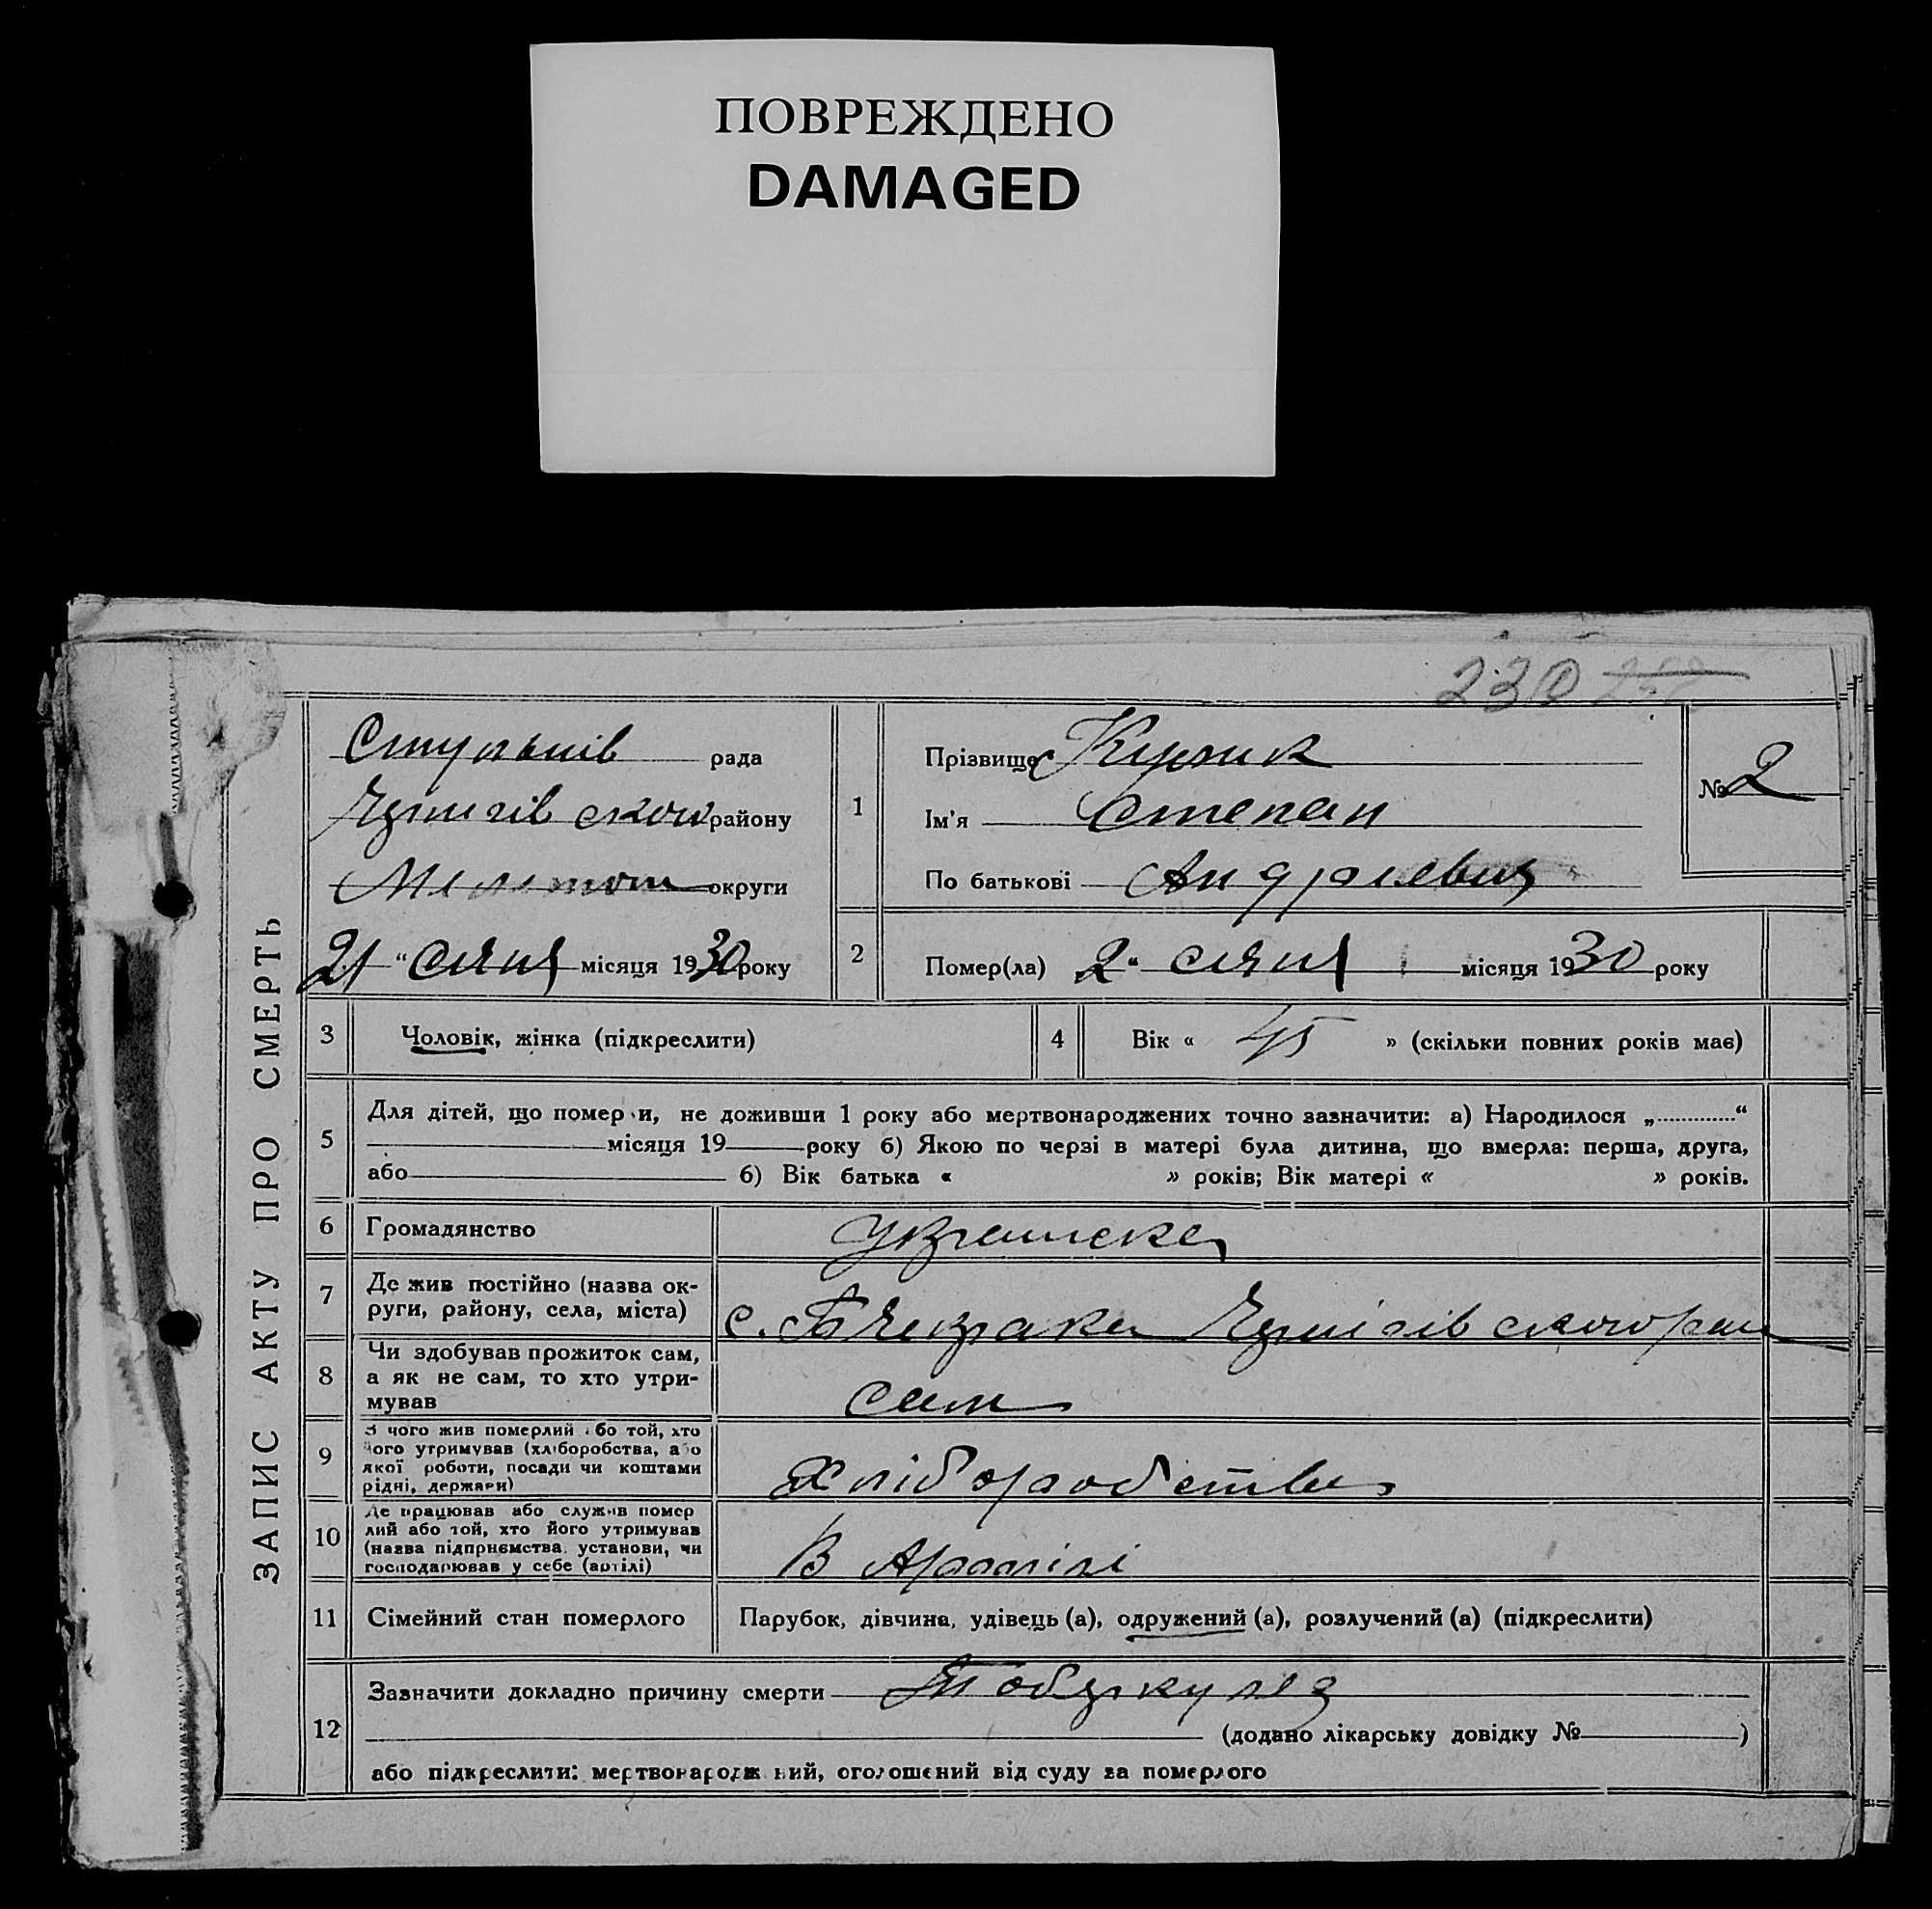 ПОВРЕЖДЕНО
DAMAGED
230
ЗАПИС АКТУ ПРО СМЕРТЬ
рада
району
округи
21 " січня місяця 1930 року
1
Прізвище
Ім'я Степан
По батькові Андрієвич
№ 2
2
Помер(ла) 2 " січня місяця 1930 року
3
Чоловік, жінка (підкреслити)
4
Вік « 45 » (скільки повних років має)
5
Для дітей, що померли, не доживши 1 року або мертвонароджених точно зазначити: а) Народилося „ “
місяця 19 року б) Якою по черзі в матері була дитина, що вмерла: перша, друга,
або б) Вік батька « » років; Вік матері « » років.
6
Громадянство
7
Де жив постійно (назва ок-
руги, району, села, міста)
с.
8
Чи здобував прожиток сам,
а як не сам, то хто утри-
мував
сам
9
З чого жив померлий або той, хто
його утримував (хліборобства, або
якої роботи, посади чи коштами
рідні, держави)
Хліборобство
10
Де працював або служив помер
лий або той, хто його утримував
(назва підприємства, установи, чи
господарював у себе (артілі)
В Артілі
11
Сімейний стан померлого
Парубок, дівчина, удівець (а), одружений (а), розлучений (а) (підкреслити)
12
Зазначити докладно причину смерти Тоберкулез
(додано лікарську довідку № )
або підкреслити: мертвонароджений, оголошений від суду за померлого